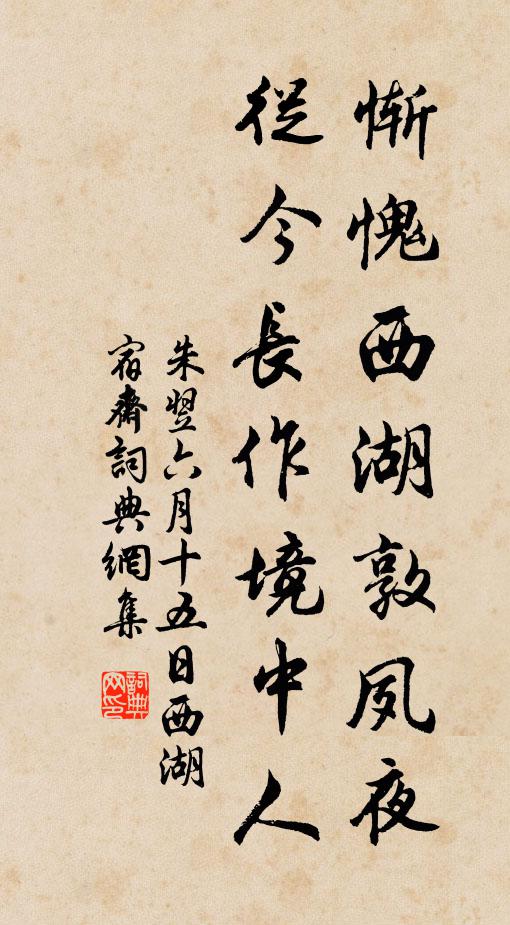 慚愧西湖敦夙夜
從今長作境中人
朱翌六月十五日西湖
宿齋詞典網集
詞典網印